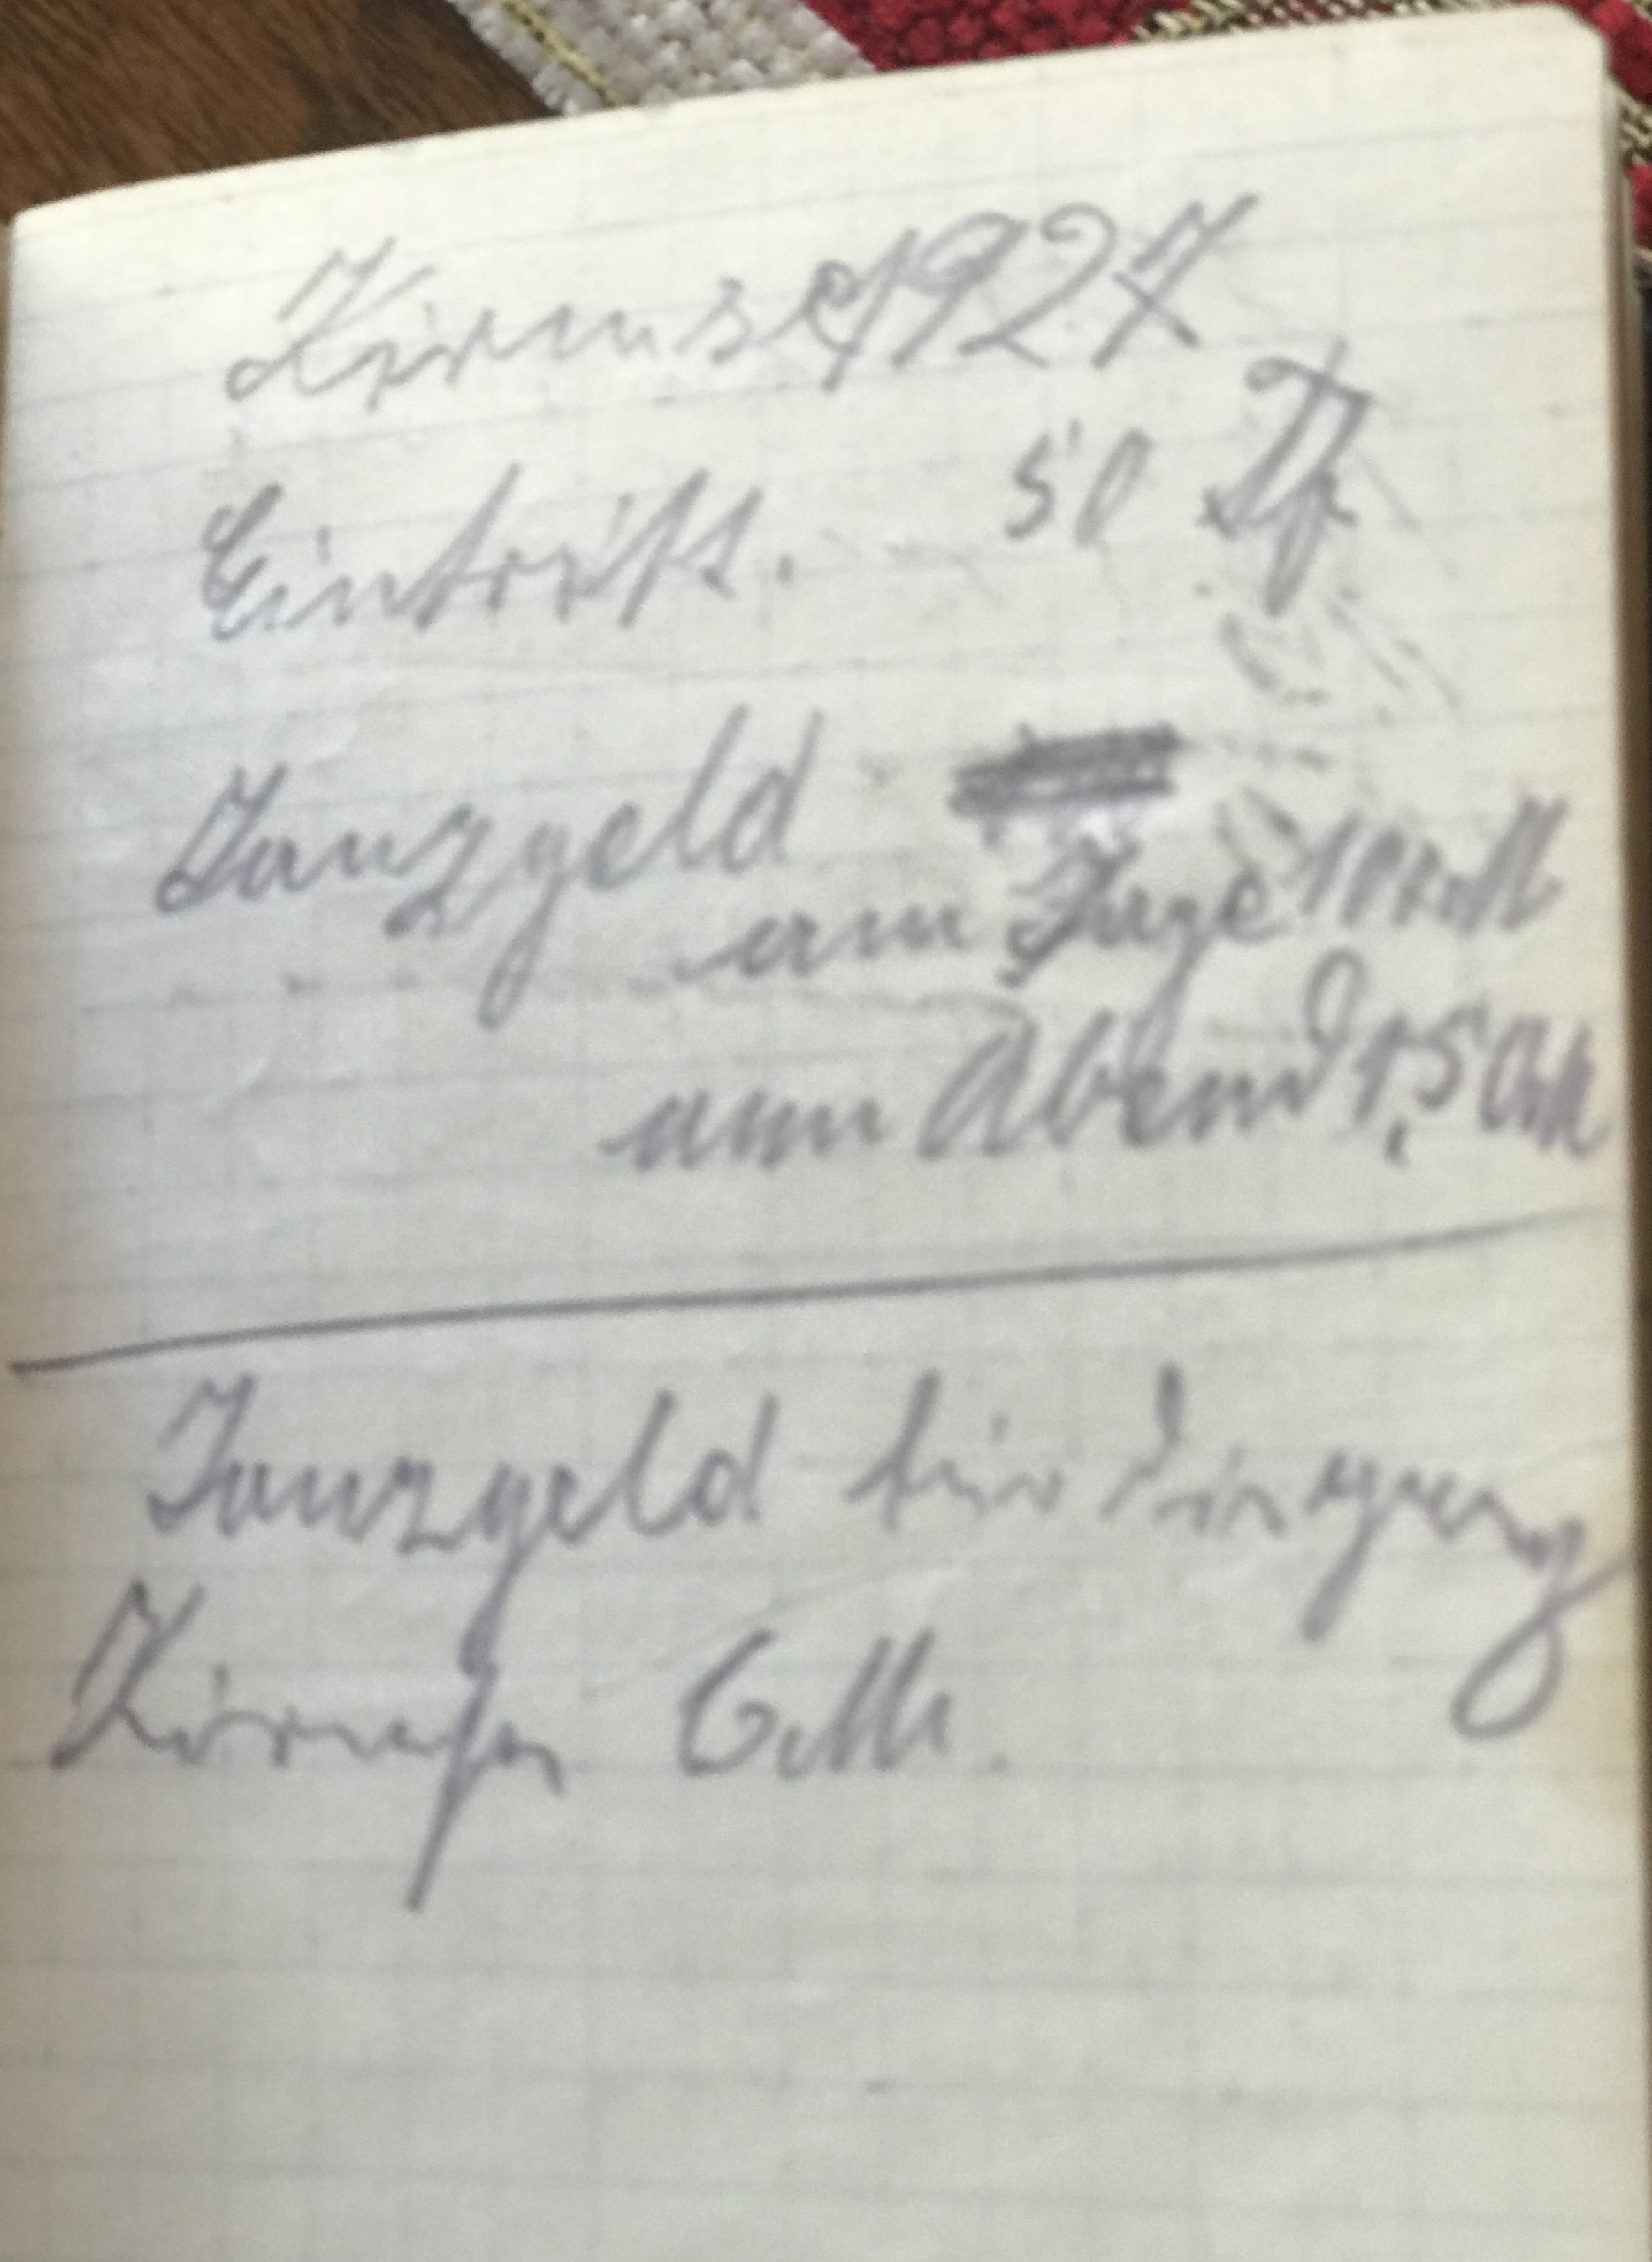 Kirmse 1927
Eintritt. 50 Pf
Tanzgeld
am Tage 1 M
am Abend 1,50 M
Tanzgeld für
Kirmse 6 M.